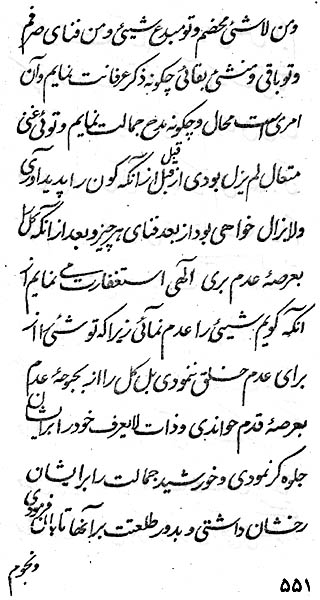 و من لاشئ محضم و تو مبدع شیئی و من فنای صرفم
و تو باقی و منشئ بقائی چگونه ذکر عرفانت نمایم و آن
امری است محال و چگونه مدح جمالت نمایم و توئی غنی
متعال لم یزل بودی از قبل قبل از آنکه کون را پدید آوری
و لا یزال خواهی بود از بعد فنای هر چیز و بعد از آنکه کل را
بعرصهٔ عدم بری الٓهی استغفارت می نمایم از
آنکه گویم شیئی را عدم نمائی زیرا که تو شئ را از
برای عدم خلق ننمودی بل کل را از بحبوحهٔ عدم
بعرصهٔ قدم خواندی و ذات لا یعرف خود را برایشان
جلوه گر نمودی و خورشید جمالت را برایشان
رخشان داشتی و بدور طلعتت بر آنها تابان فرمودی
و نجوم
۵۵۱